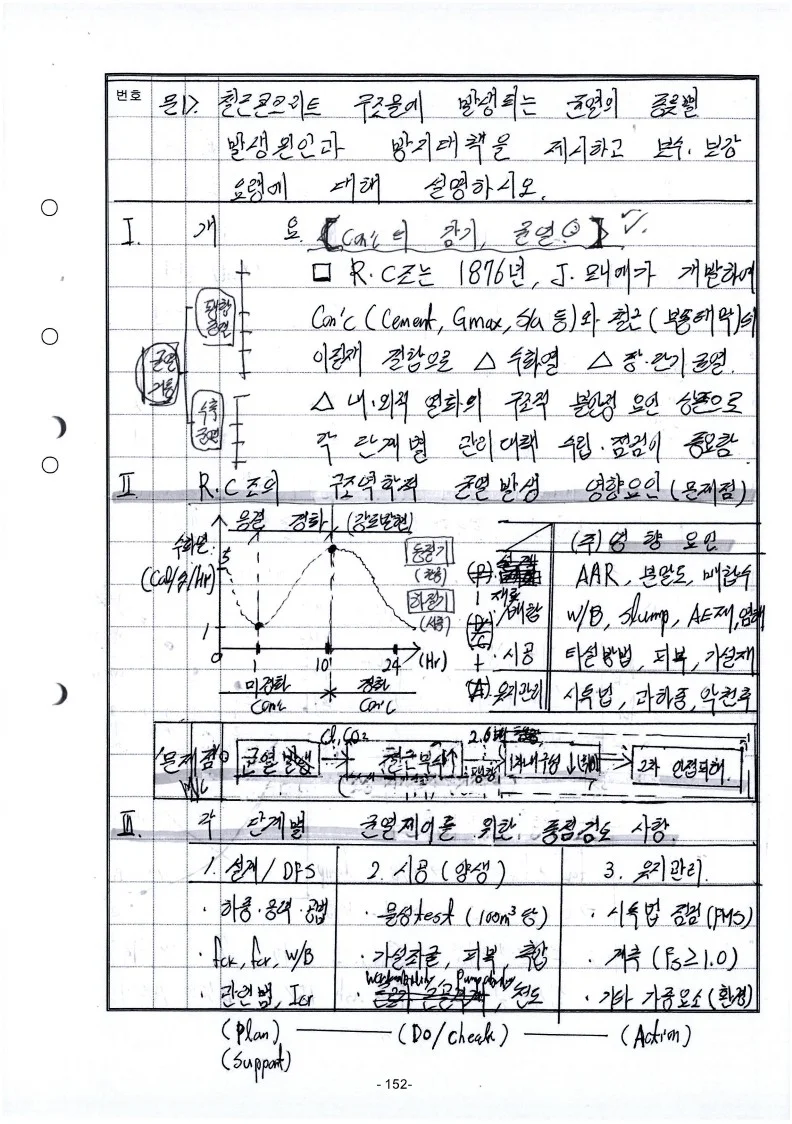 번호
문1). 철근콘크리트 구조물에 발생되는 균열의 종류별
발생원인과 방지대책을 제시하고 보수.보강
요령에 대해 설명하시오.
I. 개 요. 【Con'c의 장기, 균열 】
□ R.C조는 1876년, J.모니에가 개발하여
팽창
균열
Con'c (Cement, Gmax, S/a 등)와 철근 (부동태막)의
균열
거동
이질재 결합으로 △ 수화열 △ 장.단기 균열.
수축
균열
△ 내.외적 열화의 구조적 불안정 요인 상존으로
각 단계별 관리대책 수립.점검이 중요함
II R.C조의 구조역학적 균열발생 영향요인 (문제점)
응결 경화 (강도발현)
수화열
(Cal/g/Hr)
5
1
0
1 10 24 (Hr)
동절기
하절기
미경화 경화
Con'c Con'c
(주) 영향 요인
(P) 설계
AAR, 분말도, 배합수
재료
/배합
W/B, Slump, AE제, 염해
시공
타설방법, 피복, 가설재
(A) 유지관리
시특법, 과하중, 악천후
문제점
균열발생
Cl, CO₂
철근부식↑
팽창
내구성↓
2차 인접피해
III. 각 단계별 균열제어를 위한 중점검토 사항.
1. 설계/DFS 2. 시공 (양생) 3. 유지관리.
· 하중.응력.공법 · 물성test (100m³당) · 시특법 점검 (FMS)
· fck, fcr, W/B · 가설최글, 피복, 측압 · 계측 (Fs≥1.0)
Workability, Pumpability
· 관련법, Icr · 온도 · 기타 가중요소 (환경)
(Plan) (Do/Cheak) (Action)
(Support)
- 152-